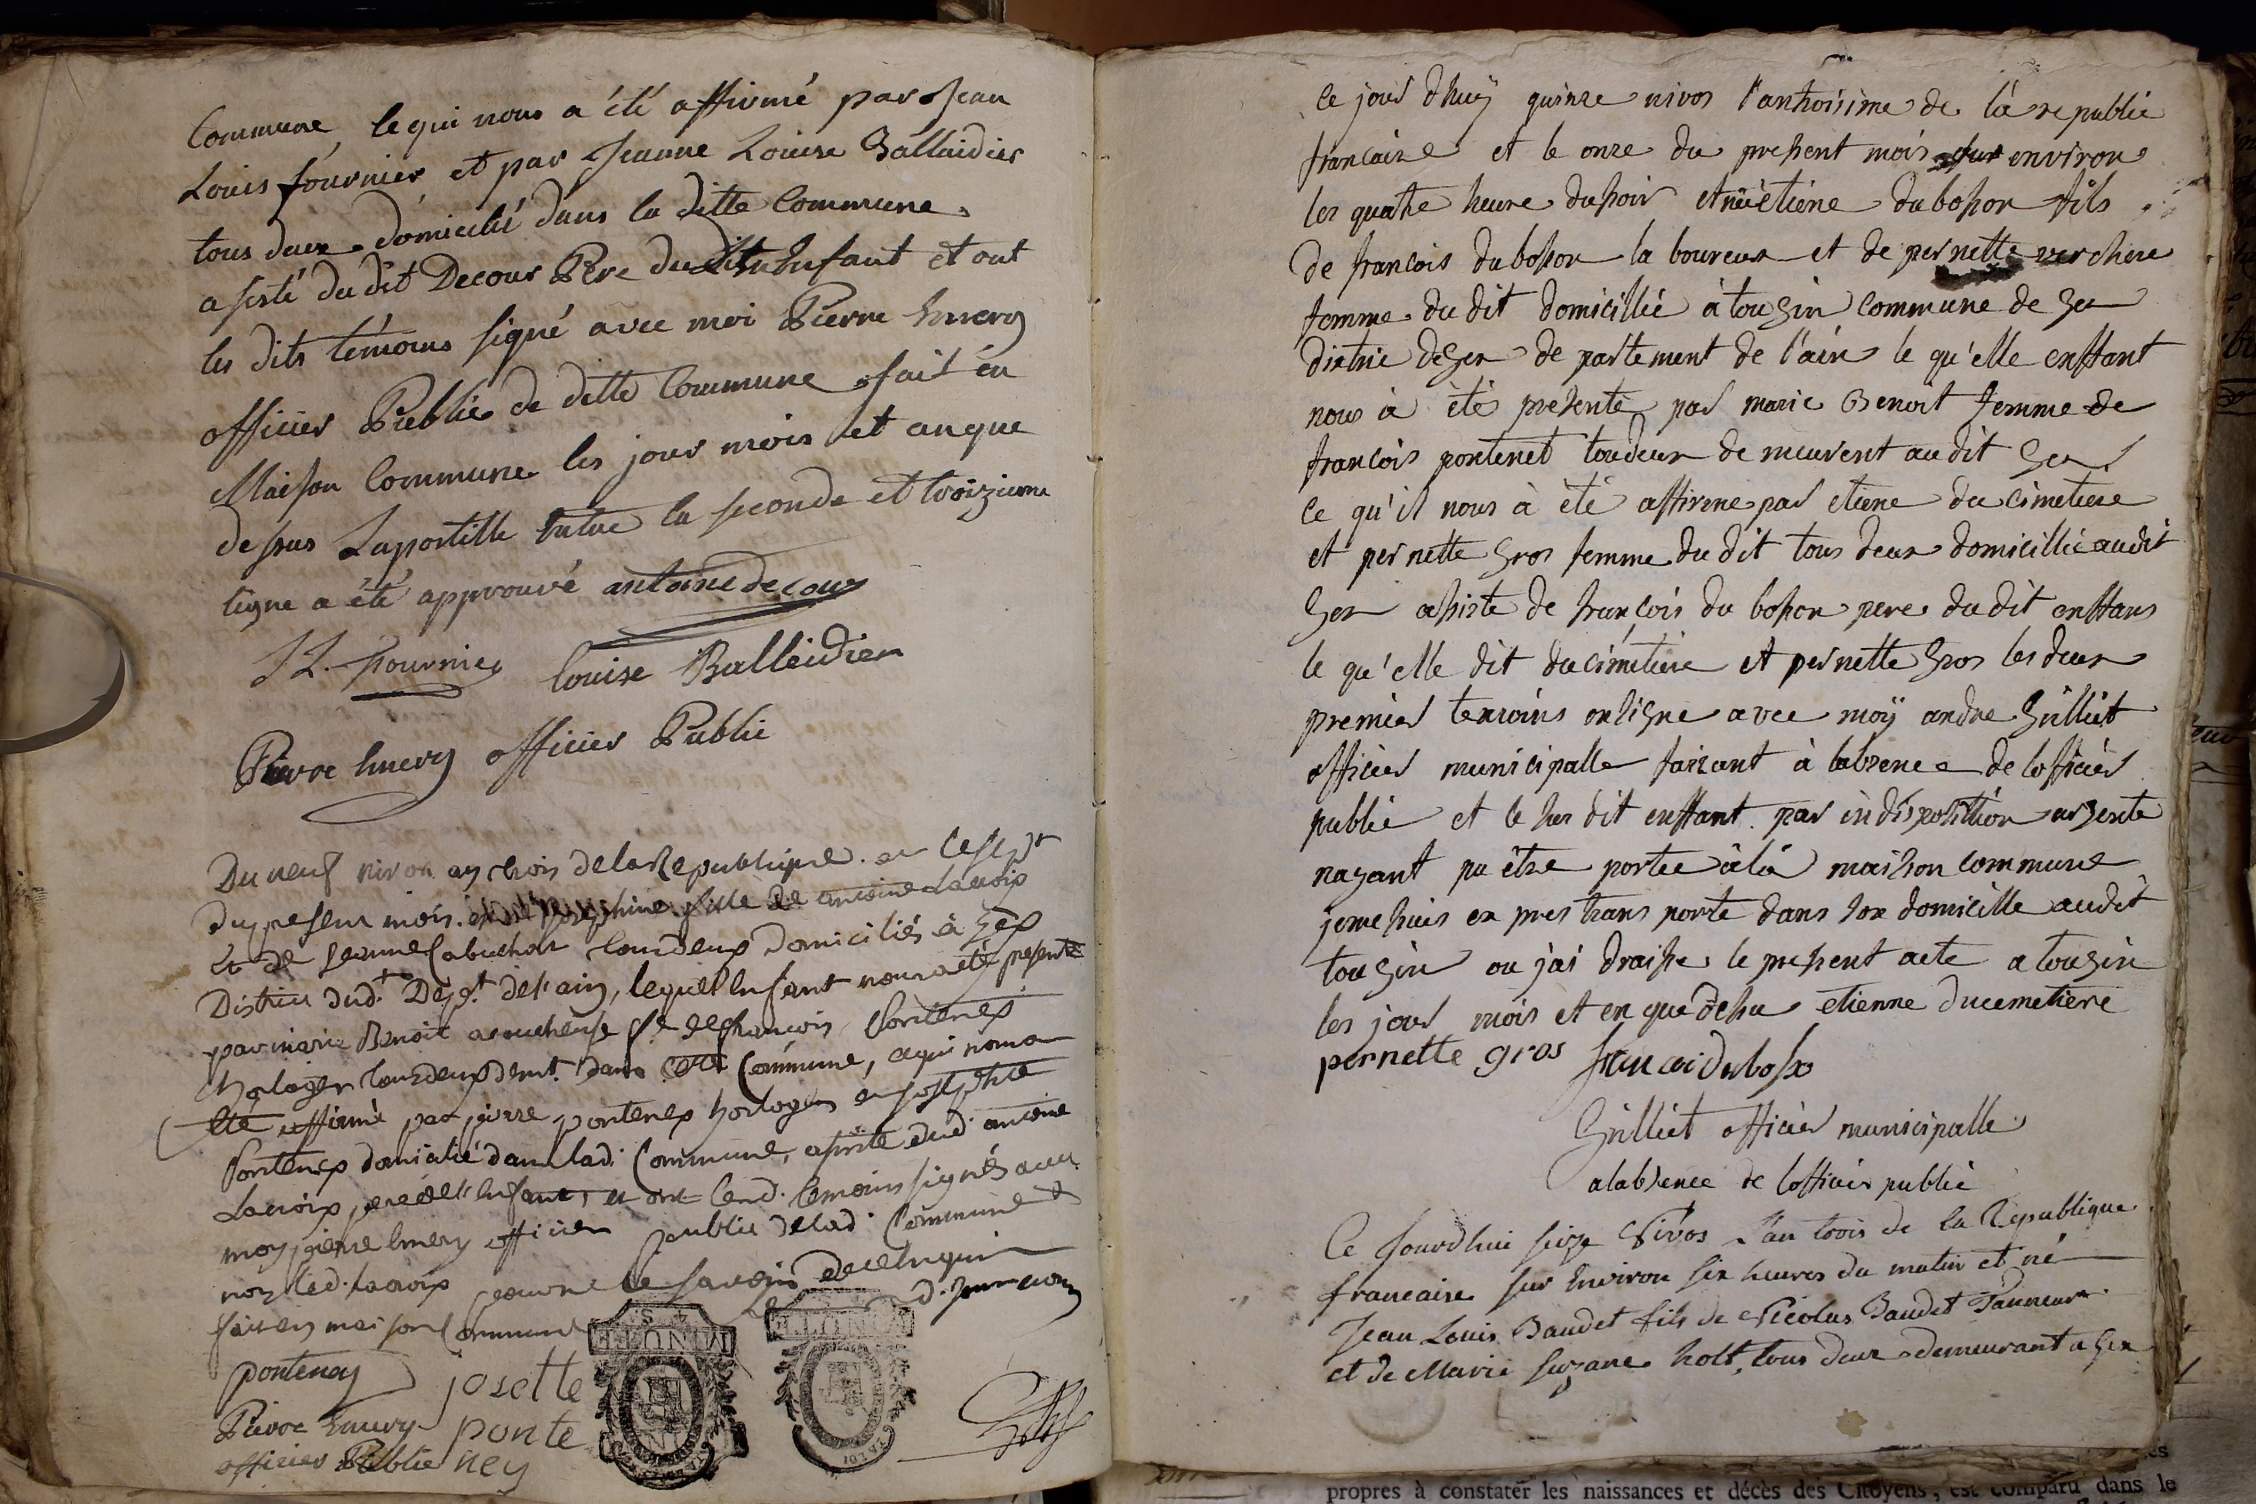 Commune, le qui nous a été affirmé par Jean
Louis fournier et par Jeanne Louise Ballaidier
tous deux domicilié dans la ditte Commune
asisté du dit Decour Pere du dit Enfant et ont
les dits témoins signé avec moi Pierre Emery
officier Public de ditte Commune fait én
Maison Commune les jour mois et an que
dessus Lapostille entre la seconde et troizieme
ligne a été approuvé antoine decour
J L. fournier Louise Balleidier
Pierre Emery officier Public
Du neuf nivos an trois de la Republique
du present mois josephine fille de antoine Lacroix
et de jeanne Cabuchat tous deux domiciliés à Gex
District dud.t Dep.t de l'ain, lequel Enfant nous a été presenté
par marie Benoit acoucheuse f.e de francois Pontenex
horloger tous deux demt. dans cette Commune, ce qui nous a
été affirmé par pierre pontenex horloger et josephte
Pontenex domicilié dans lad. Commune, asisté dud. antoine
Lacroix, pere de l'enfant, et ont lesd. temoins signés avec
moy pierre Emery officier public de lad. Commune et
non led. Lacroix pour ne le savoir de ce enquis
fait en maison Commune
pontenex josette
Pierre Emery ponte
officier Public ney
MINUTE
ce jour d'huy quinze nivos l'antroisime de la republic
francaise et le onze du present mois sur environ
les quatre heure du soir est né etiene dubosson fils
de francois dubosson laboureur et de pernette verchere
femme du dit domicillié à tougin commune de Gex
distric de Gex departement de l'ain le qu'elle enffant
nous à été presenté par marie Benoit femme de
francois pontenet tondeur demeurent audit Gex
ce qu'il nous à été affirme par etiene du cimetiere
et pernette Gros femme du dit tous deux domicillié audit
Gex assiste de françois du bosson pere du dit enffans
le qu'elle dit ducimetiere et pernette Gros les deux
premier temoins on signe avec moy andre Gilliet
officier municipalle faizant à labsence de lofficier
public et le sus dit enffant par indisposition urgente
nayant pu être portee à la maison commune
je me suis ex pres transporte dans son domicille audit
tougin ou j'ai draisse le present acte a tougin
les jour mois et en que desu etienne ducemetiere
pernette gros francoi duboson
Gilliet officier municipalle
alabsence de lofficier public
Ce Jourdhui seize Nivos L'an trois de la Republique
francaise sur Environ six heures du matin et né
Jean Louis Baudet fils de Nicolas Baudet Tanneur
et de Marie Suzane holt, tous deux demeurant a Gex
propres à constater les naissances et décès des Citoyens, est comparu dans le